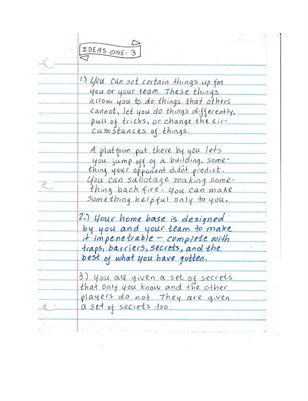 IDEAS ONE: 3
1.) You can set certain things up for
you or your team. These things
allow you to do things that others
cannot, let you do things differently,
pull of tricks, or change the cir-
cumstances of things.
A platform put there by you lets
you jump off of a building, some-
thing your opponent didn't predict.
You can sabotage making some-
thing back fire. You can make
something helpful only to you.
2.) Your home base is designed
by you and your team to make
it impenetrable - complete with
traps, barriers, secrets, and the
best of what you have gotten.
3) You are given a set of secrets
that only you know and the other
players do not. They are given
a set of secrets too.